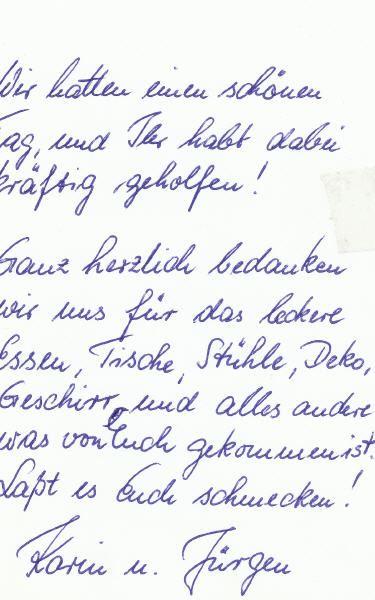 Wir hatten einen schönen
Tag, und Ihr habt dabei
kräftig geholfen!
Ganz herzlich bedanken
wir uns für das leckere
Essen, Tische, Stühle, Deko,
Geschirr, und alles andere
was von Euch gekommen ist.
Laßt es Euch schmecken!
Karin u. Jürgen